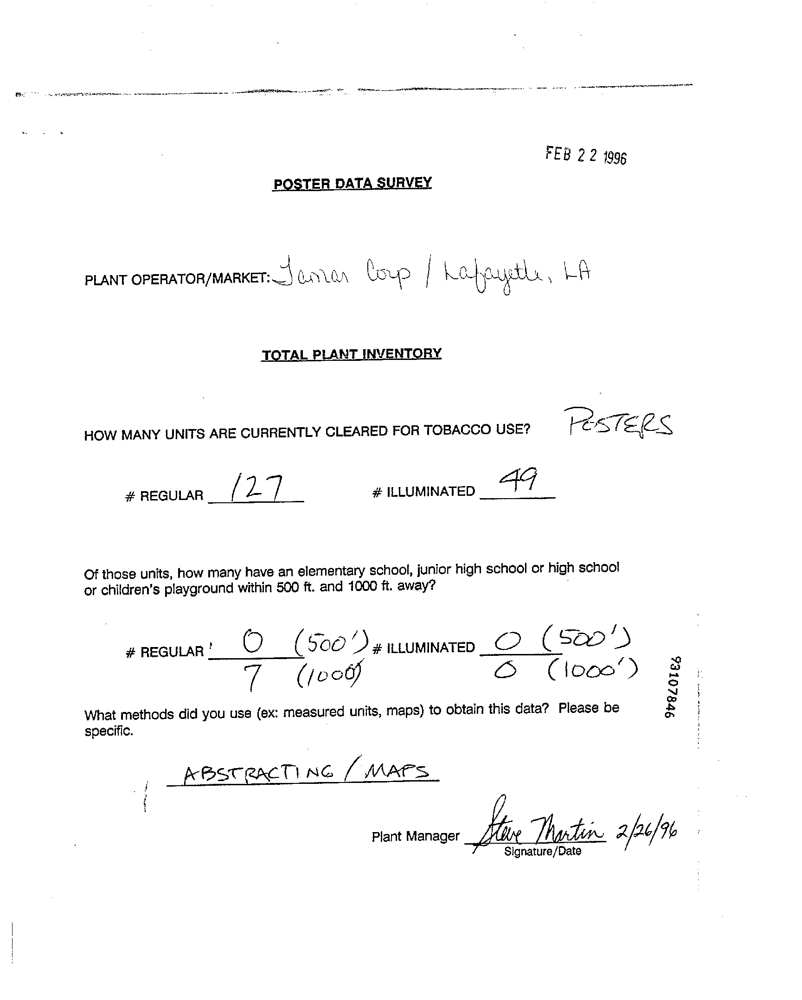 FEB 22 1996
POSTER DATA SURVEY
PLANT OPERATOR/MARKET: Lamar Corp / Lafayette, LA
TOTAL PLANT INVENTORY
HOW MANY UNITS ARE CURRENTLY CLEARED FOR TOBACCO USE? POSTERS
# REGULAR 127 # ILLUMINATED 49
Of those units, how many have an elementary school, junior high school or high school
or children's playground within 500 ft. and 1000 ft. away?
# REGULAR 0 (500') # ILLUMINATED 0 (500')
7 (1000') 0 (1000')
93107846
What methods did you use (ex: measured units, maps) to obtain this data? Please be
specific.
ABSTRACTING / MAPS
Plant Manager Steve Martin 2/26/96
Signature/Date